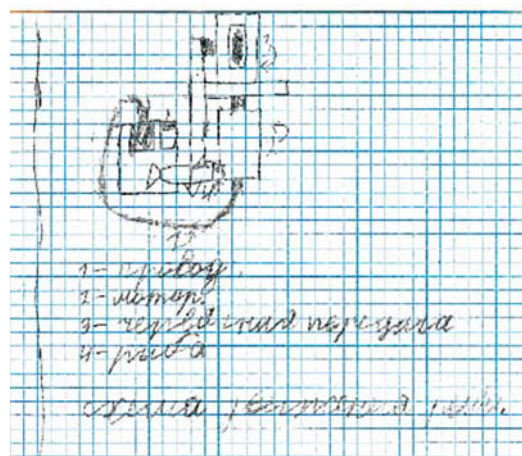 1-привод.
2-мотор.
3-червячная передача
4-рыба
схема